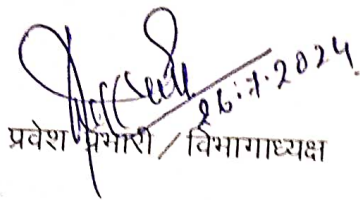 26.7.2024
प्रवेश प्रभारी / विभागाध्यक्ष